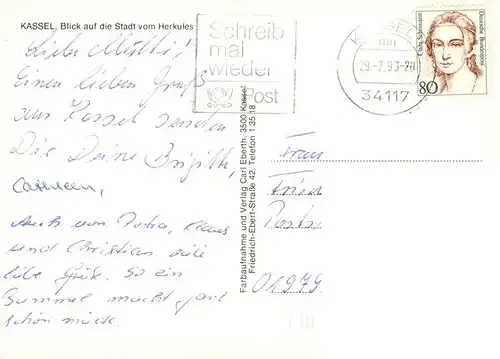 KASSEL, Blick auf die Stadt vom Herkules
Liebe Mutti!
Einen lieben Gruß
aus Kassel senden
Dir Deine Brigitte,
Cathleen,
Auch von Jutta, Klaus
und Christian viele
liebe Grüße. So ein
Bummel macht ganz
schön müde.
Farbaufnahme und Verlag Carl Eberth, 3500 Kassel
Friedrich-Ebert-Straße 42, Telefon 1 35 18
Schreib
mal
wieder
Post
KASSEL
mn
29.-7.93-20
34117
Clara Schumann
Deutsche Bundespost
80
Frau
01979